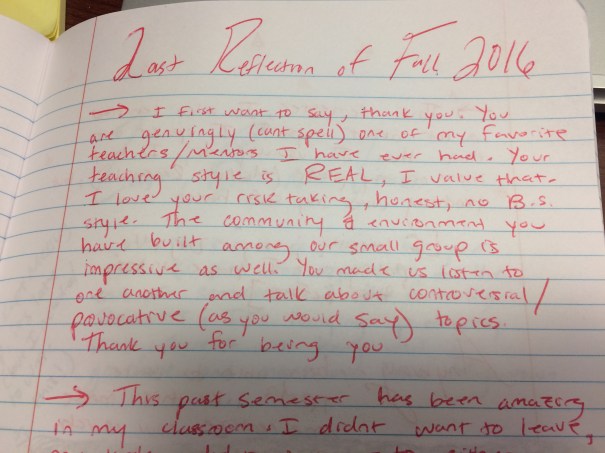 Last Reflection of Fall 2016
→ I first want to say, thank you. You
are genuingly (cant spell) one of my favorite
teachers/mentors I have ever had. Your
teaching style is REAL, I value that.
I love your risk taking, honest, no B.S.
style. The community & environment you
have built among our small group is
impressive as well. You made us listen to
one another and talk about controversial/
provocative (as you would say) topics.
Thank you for being you
→ This past semester has been amazing
in my classroom. I didnt want to leave,